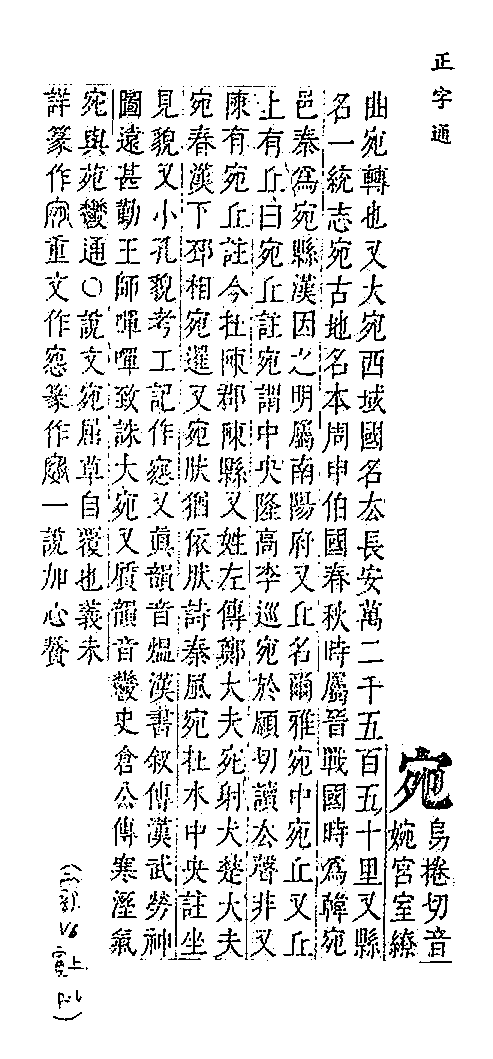 正字通
宛 烏捲切音
婉宮室繚
曲宛轉也又大宛西域國名去長安萬二千五百五十里又縣
名一統志宛古地名本周申伯國春秋時屬晉戰國時爲韓宛
邑秦爲宛縣漢因之明屬南陽府又丘名爾雅宛中宛丘又丘
上有丘曰宛丘註宛謂中央隆高李巡宛於願切讀去聲非又
陳有宛丘註今在陳郡陳縣又姓左傳鄭大夫宛射犬楚大夫
宛春漢下邳相宛選又宛肰猶依肰詩秦風宛在水中央註坐
見貌又小孔貌考工記作窓又眞韻音熅漢書叙傳漢武勞神
圖遠甚勤王師嘽嘽致誅大宛又質韻音鬱史倉公傳寒溼氣
宛與苑鬱通〇說文宛屈草自覆也義未
詳篆作重文作惌篆作一說加心贅